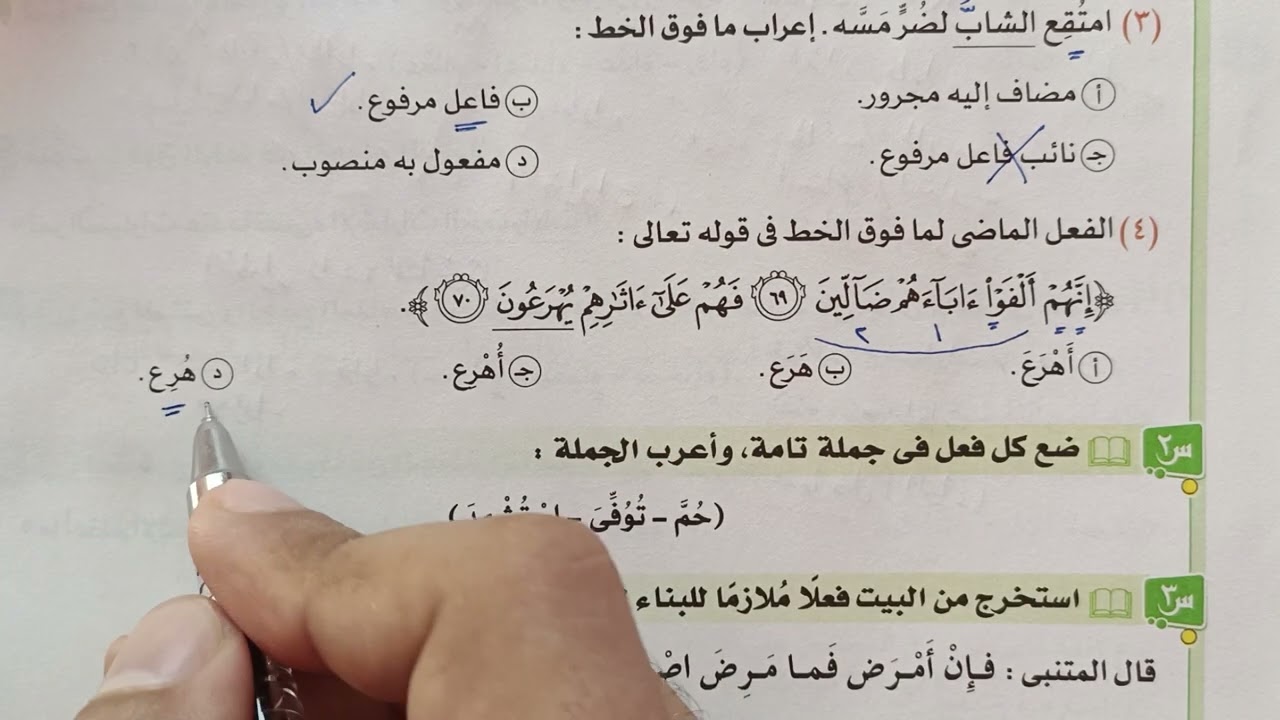 (٣) امتُقِع الشابُّ لضُرٍّ مَسَّه. إعراب ما فوق الخط :
أ مضاف إليه مجرور. ب فاعل مرفوع.
جـ نائب فاعل مرفوع. د مفعول به منصوب.
(٤) الفعل الماضى لما فوق الخط فى قوله تعالى :
﴿إِنَّهُمْ أَلْفَوْاْ ءَابَآءَهُمْ ضَآلِّينَ ٦٩ فَهُمْ عَلَىٰٓ ءَاثَٰرِهِمْ يُهْرَعُونَ ٧٠﴾.
١ ٢
أ أَهْرَعَ. ب هَرَعَ. جـ أُهْرِع. د هُرِع.
س٢ ضع كل فعل فى جملة تامة، وأعرب الجملة :
(حُمَّ – تُوُفِّىَ –
س٣ استخرج من البيت فعلًا مُلازمًا للبناء
قال المتنبى : فـإِنْ أَمْـرَض فَما مَـرِضَ